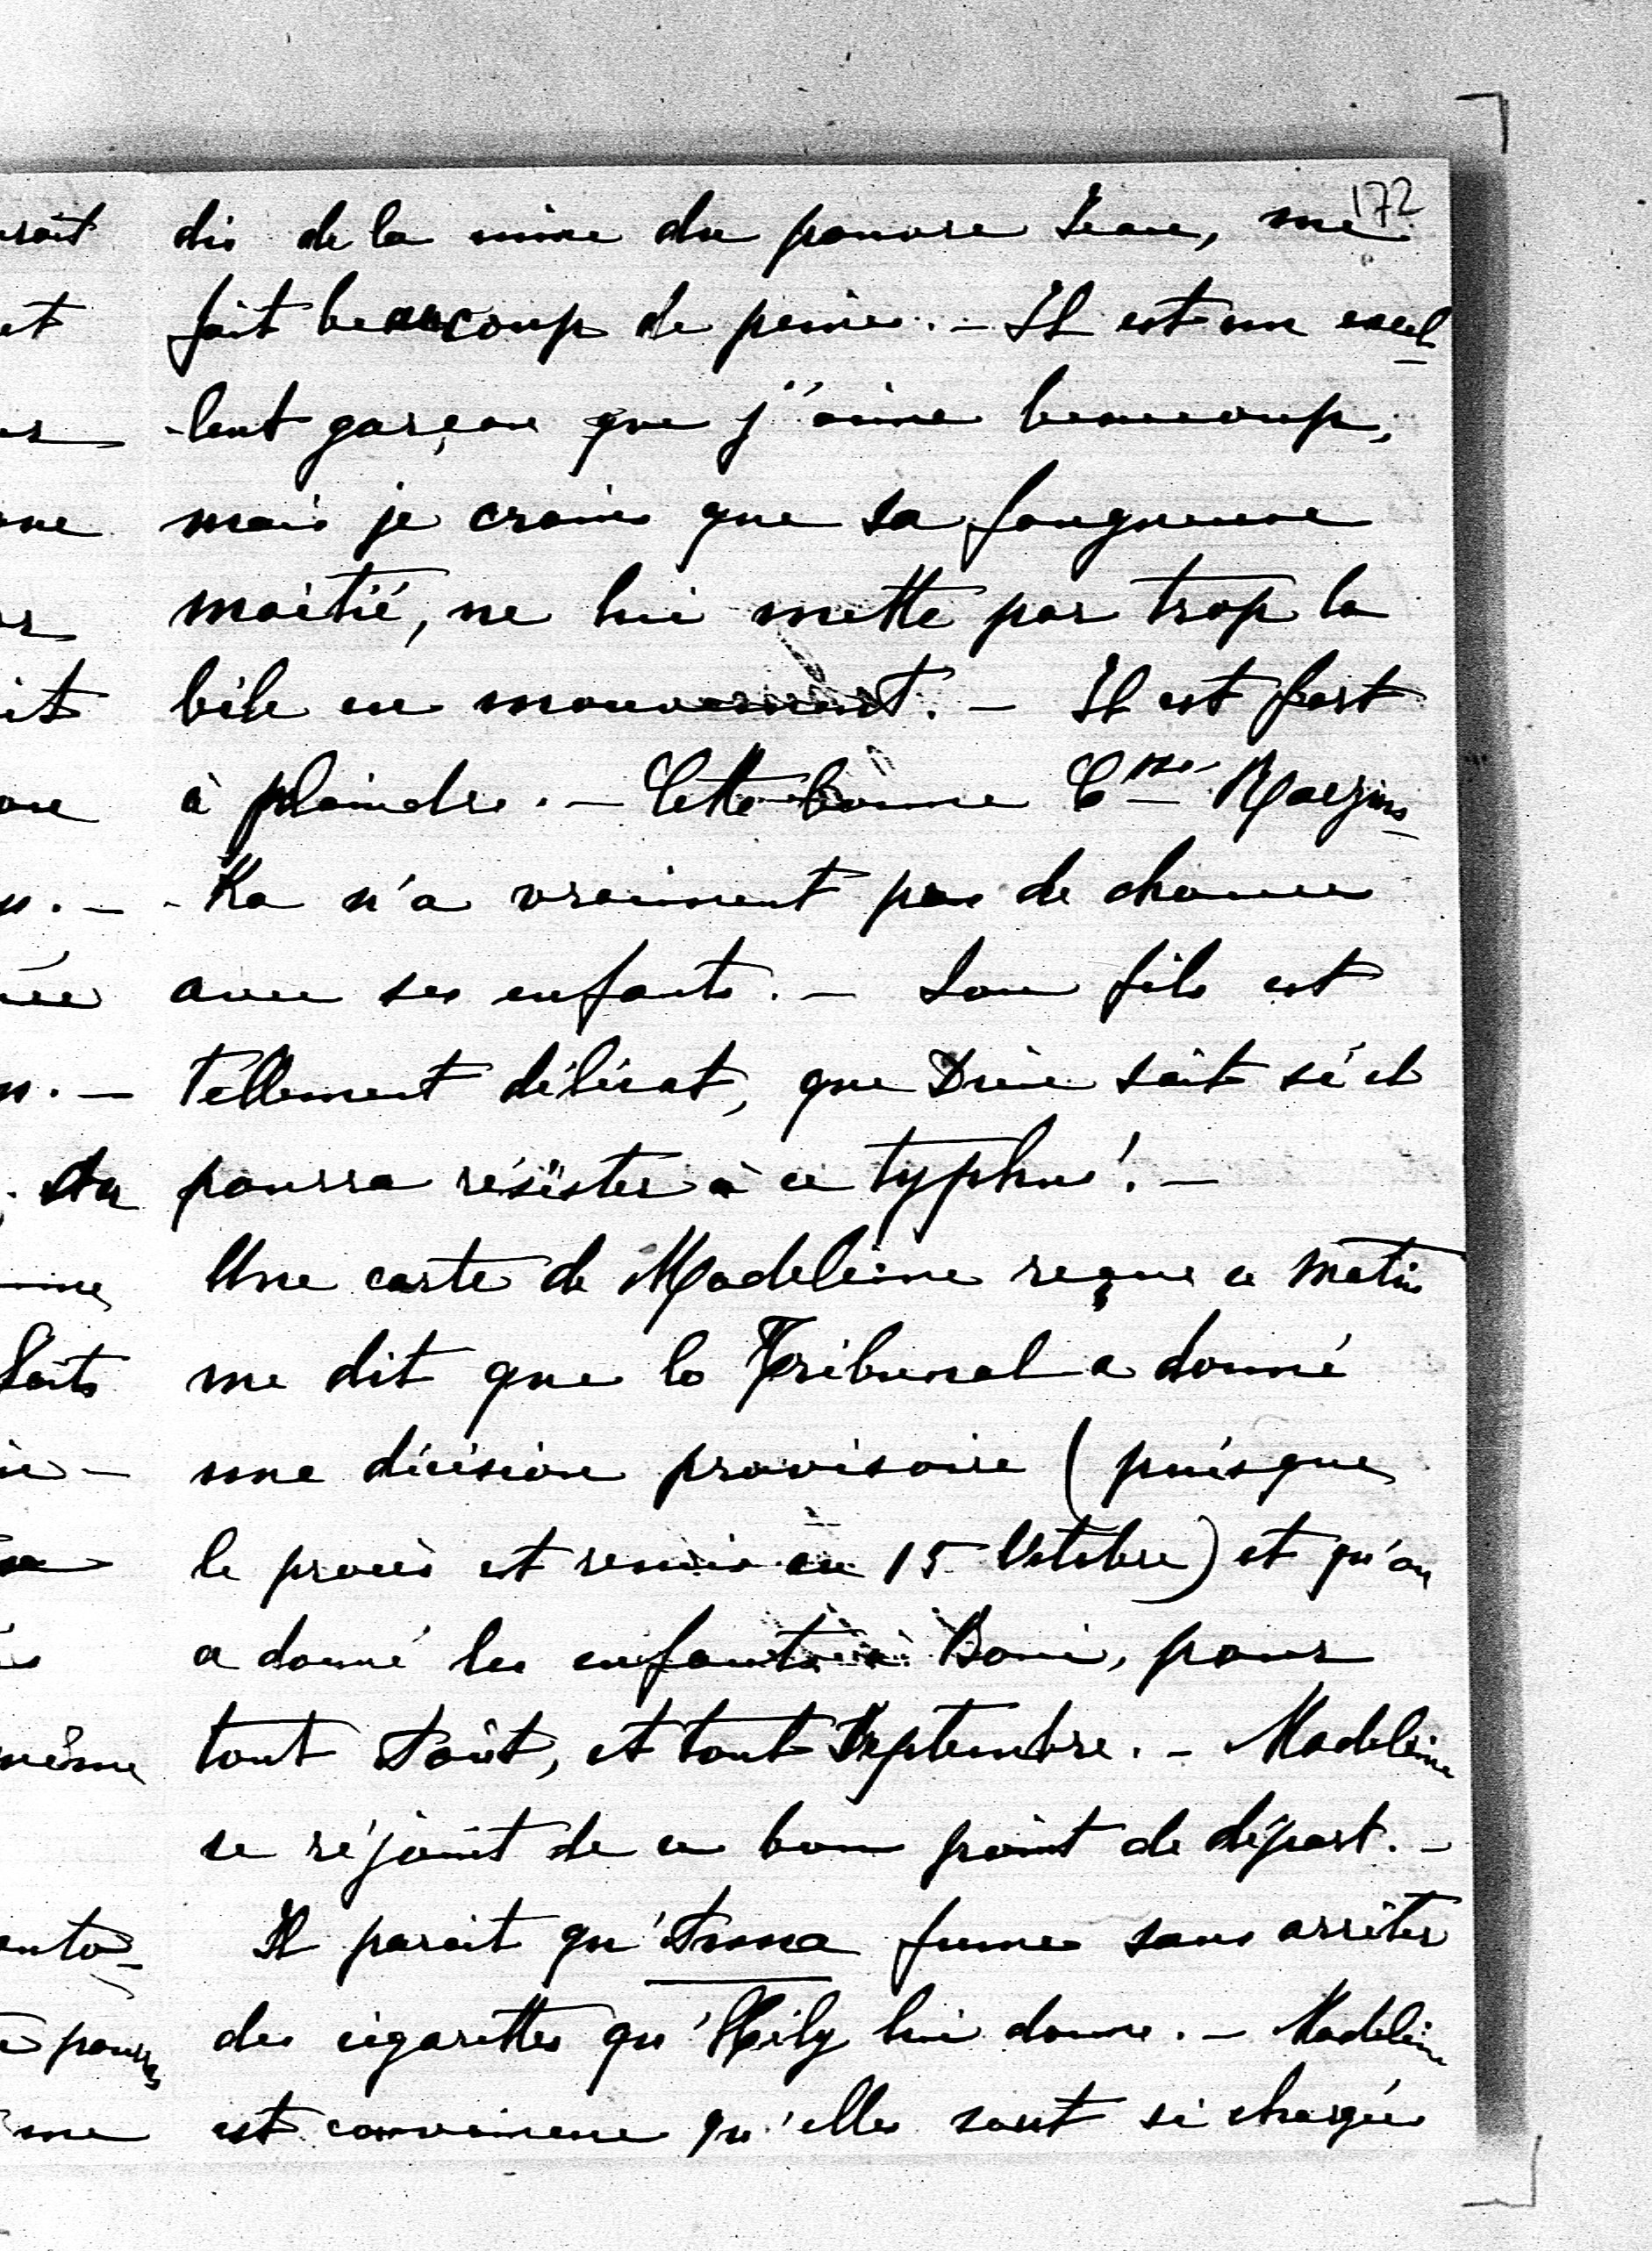 172
dis de la mine du pauvre Jean, me
fait beaucoup de peine. - Il est un excel
-lent garçon que j'aime beaucoup,
mais je crains que sa fougueuse
moitié, ne lui mette par trop la
bile en mouvement. - Il est fort
à plaindre. - Cette bonne Ctsse
-Ka n'a vraiment pas de chance
avec ses enfants. - Son fils est
tellement délicat, que Dieu sait s'il
pourra résister à ce typhus! -
Une carte de Madeleine reçue ce matin
me dit que le Tribunal a donné
une décision provisoire (puisque
le procès est remis au 15 Octobre) et qu'on
a donné les enfants à Boni, pour
tout Août, et tout Septembre. - Madeleine
se réjouit de ce bon point de départ. -
Il parait qu'Anna fume sans arrêter
des cigarettes qu'Hély lui donne. - Madeleine
est convaincue qu'elles sont si chargées